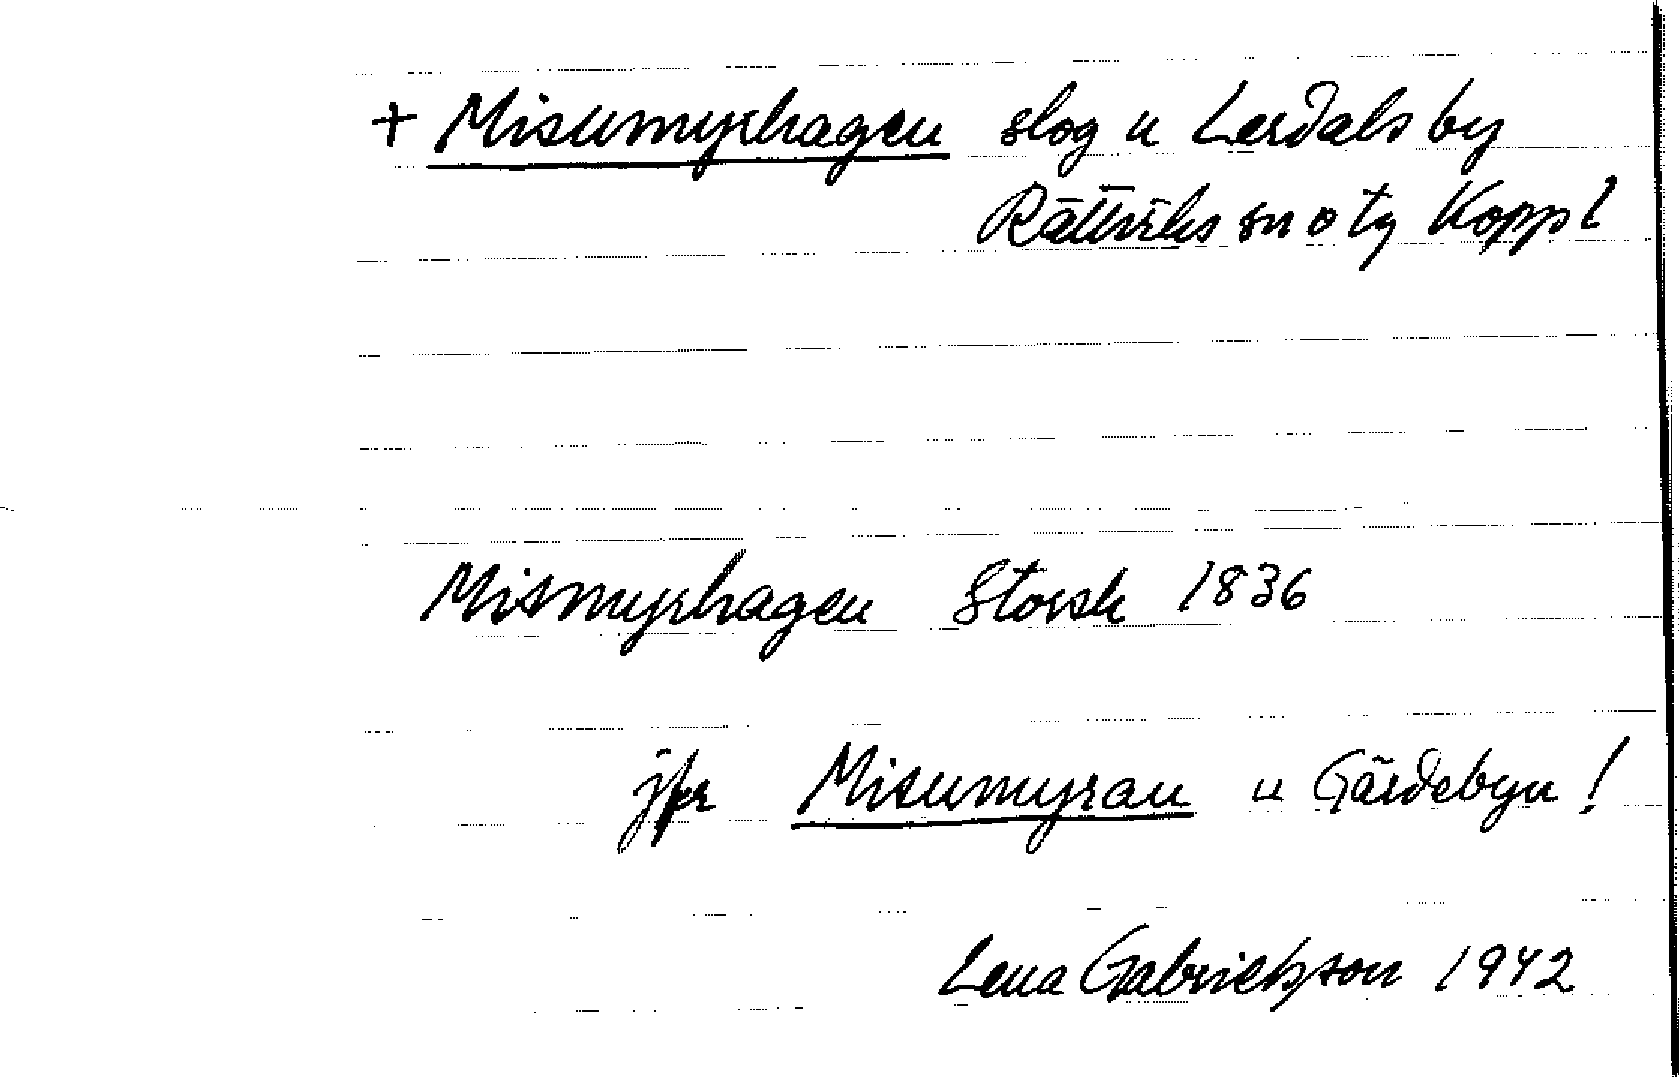 + Misumyrhagen slog u Lerdals by
Rättviks sn o tg Kopp l
Mismyrhagen Storsk 1836
jfr Misumyran u Gärdebyn !
Lena Gabrielsson 1942